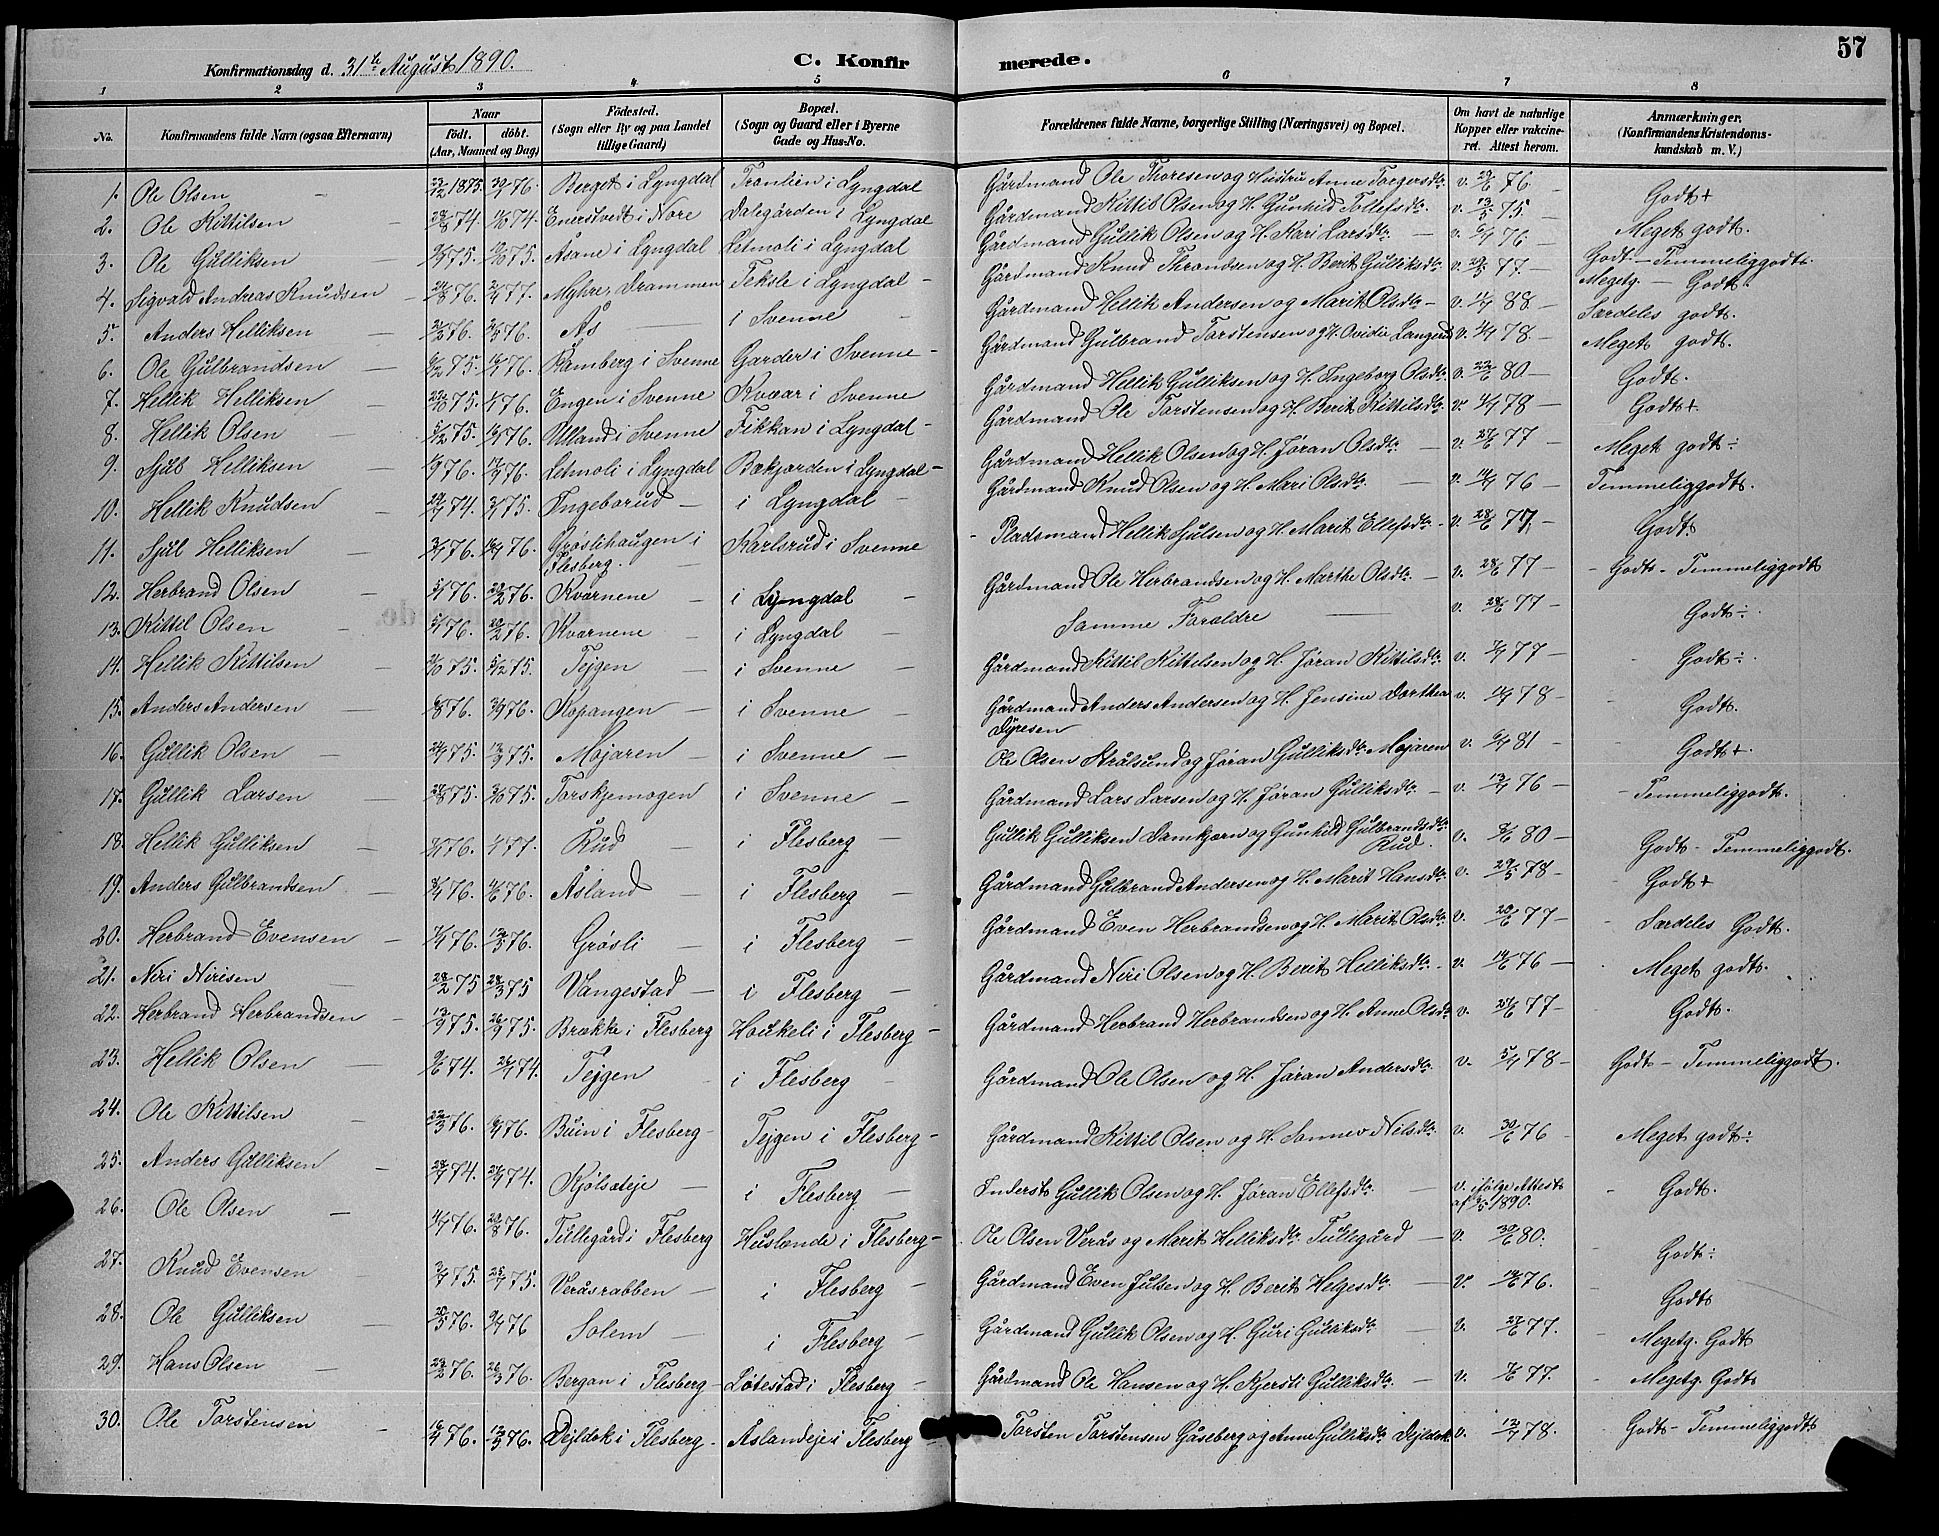 57
Konfirmationsdag d. 31te August 1890.
C. Konfirmerede.
1 2 3 4 5 6 7 8
No.
Konfirmandens fulde Navn (ogsaa Efternavn)
Naar
födt. döbt.
(Aar, Maaned og Dag)
Födested.
(Sogn eller By og paa Landet
tillige Gaard)
Bopæl.
(Sogn og Gaard eller i Byerne
Gade og Hus-No.
Forældrenes fulde Navne, borgerlige Stilling (Næringsvei) og Bopæl.
Om havt de naturlige
Kopper eller vakcine-
ret. Attest herom.
Anmærkninger.
(Konfirmandens Kristendoms-
kundskab m. V.)
1. Ole Olsen 1875. 76. Berget i Lyngdal Trånlien i Lyngdal Gårdmand Ole Thoresen og Hustru Anne Torgersdtr. v. 29/6 76 Godt+
2. Ole Kittilsen 74. 74. Enerstvedt i Nore Dalegården i Lyngdal Gårdmand Kittil Olsen og H. Gunhild Tollefsdtr. v. 13/5 75. Meget godt.
3. Ole Gulliksen 75. 75. Åsone i Lyngdal Letmoli i Lyngdal Gårdmand Gullik Olsen og H. Mari Larsdtr. v. 76 Godt - Temmeliggodt.
4. Sigvald Andreas Knudsen 76. 77. Myhre, Drammen Teksle i Lyngdal Gårdmand Knud Throndsen og H. Berit Gulliksdtr. v. 29/5 77. Megetg. - Godt.
5. Anders Helliksen 76. 76. Ås i Svenne Gårdmand Hellik Andersen og Marit Olsdtr. v. 88 Særdeles godt.
6. Ole Gulbrandsen 75. 76. Ramberg i Svenne Garder i Svenne Gårdmand Gulbrand Torstensen og H. Ovidia Langerud v. 78. Meget godt.
7. Hellik Helliksen 75. 76. Engen i Svenne Kvær i Svenne Gårdmand Hellik Gulliksen og H. Ingeborg Olsdtr. v. 22/6 80 Godt.
8. Hellik Olsen 75. 76. Ulland i Svenne Fikkan i Lyngdal Gårdmand Ole Torstensen og H. Berit Kittilsdtr. v. 78 Godt+
9. Sjul Helliksen 76. 76. Letmoli i Lyngdal Bækjorden i Lyngdal Gårdmand Hellik Olsen og H. Jøran Olsdtr. v. 77 Meget godt÷
10. Hellik Knudsen 74. 75. Ingeborud i Lyngdal Gårdmand Knud Olsen og H. Mari Olsdtr. v. 76 Temmeliggodt.
11. Sjul Helliksen 76. 76. Grøslihaugen i Flesberg. Karlsrud i Svenne Pladsmand Hellik Sjulsen og H. Marit Ellefsdtr. v. 28/6 77. Godt.
12. Herbrand Olsen 76. 76. Kvårnene i Lyngdal Gårdmand Ole Herbrandsen og H. Marthe Olsdtr. v. 28/6 77 Godt - Temmeliggodt
13. Kittil Olsen 76. 76. Kvårnene i Lyngdal Samme Forældre v. 28/6 77 Godt÷
14. Hellik Kittilsen 75. 75. Tejgen i Svenne Gårdmand Kittil Kittelsen og H. Jøran Kittilsdtr. v. 77 Godt÷
15. Anders Andersen 76. 76. Kopangen i Svenne Gårdmand Anders Andersen og H. Jensine Dorthea Dyresen v. 78 Godt.
16. Gullik Olsen 75. 75. Mojaren i Svenne Ole Olsen Strålsund og Jøran Gulliksdtr. Mojaren v. 81 Godt+
17. Gullik Larsen 75. 75. Torskjemogen i Svenne Gårdmand Lars Larsen og H. Jøran Gulliksdtr. v. 76 Temmeliggodt.
18. Hellik Gulliksen 76. 77. Rud i Flesberg Gullik Gulliksen Damkjærn og Gunhild Gulbrandsdtr. Rud. v. 80 Godt - Temmeliggodt.
19. Anders Gulbrandsen 76. 76. Åsland i Flesberg Gårdmand Gulbrand Andersen og H. Marit Hansdtr. v. 29/5 78 Godt+
20. Herbrand Evensen 76. 76. Grøsli i Flesberg Gårdmand Even Herbrandsen og H. Marit Olsdtr. v. 77 Særdeles Godt.
21. Niri Nirisen 75 75 Vangestad i Flesberg Gårdmand Niri Olsen og H. Berit Helliksdtr. v. 76 Meget godt.
22. Herbrand Herbrandsen 75. 75. Brække i Flesberg Houkeli i Flesberg Gårdmand Herbrand Herbrandsen og H. Anne Olsdtr. v. 77 Godt.
23. Hellik Olsen 74. 74. Tejgen i Flesberg Gårdmand Ole Olsen og H. Jøran Andersdtr. v. 78 Godt - Temmeliggodt.
24. Ole Kittilsen 76. 76. Buin i Flesberg Tejgen i Flesberg Gårdmand Kittil Olsen og H. Sønnev Nilsdtr. v. 30/6 76 Meget godt÷
25. Anders Gulliksen 74. 74. Kjølsteje i Flesberg Inderst Gullik Olsen og H. Jøran Ellefsdtr. v. ifølge Attest af 1890. Godt.
26. Ole Olsen 76. 76. Tullegård i Flesberg Huslende i Flesberg Ole Olsen Verås og Marit Helliksdtr. Tullegård v. 30/6 80. Godt÷
27. Knud Evensen 75. 75. Veråsrabben i Flesberg Gårdmand Even Julsen og H. Berit Helgesdtr. v. 76. Godt
28. Ole Gulliksen 76. 76 Solem i Flesberg Gårdmand Gullik Olsen og H. Guri Gulliksdtr. v. 77. Megetg. Godt
29. Hans Olsen 76. 76. Bergan i Flesberg Løtestad i Flesberg Gårdmand Ole Hansen og H. Kjersti Gulliksdtr. v. 77. Megetg. Godt
30. Ole Torstensen 76. 76. Dejldok i Flesberg Åslandeje i Flesberg Torsten Torstensen Gåseberg og Anne Gulliksdtr. Dejldok v. 78. Godt - Temmeliggodt